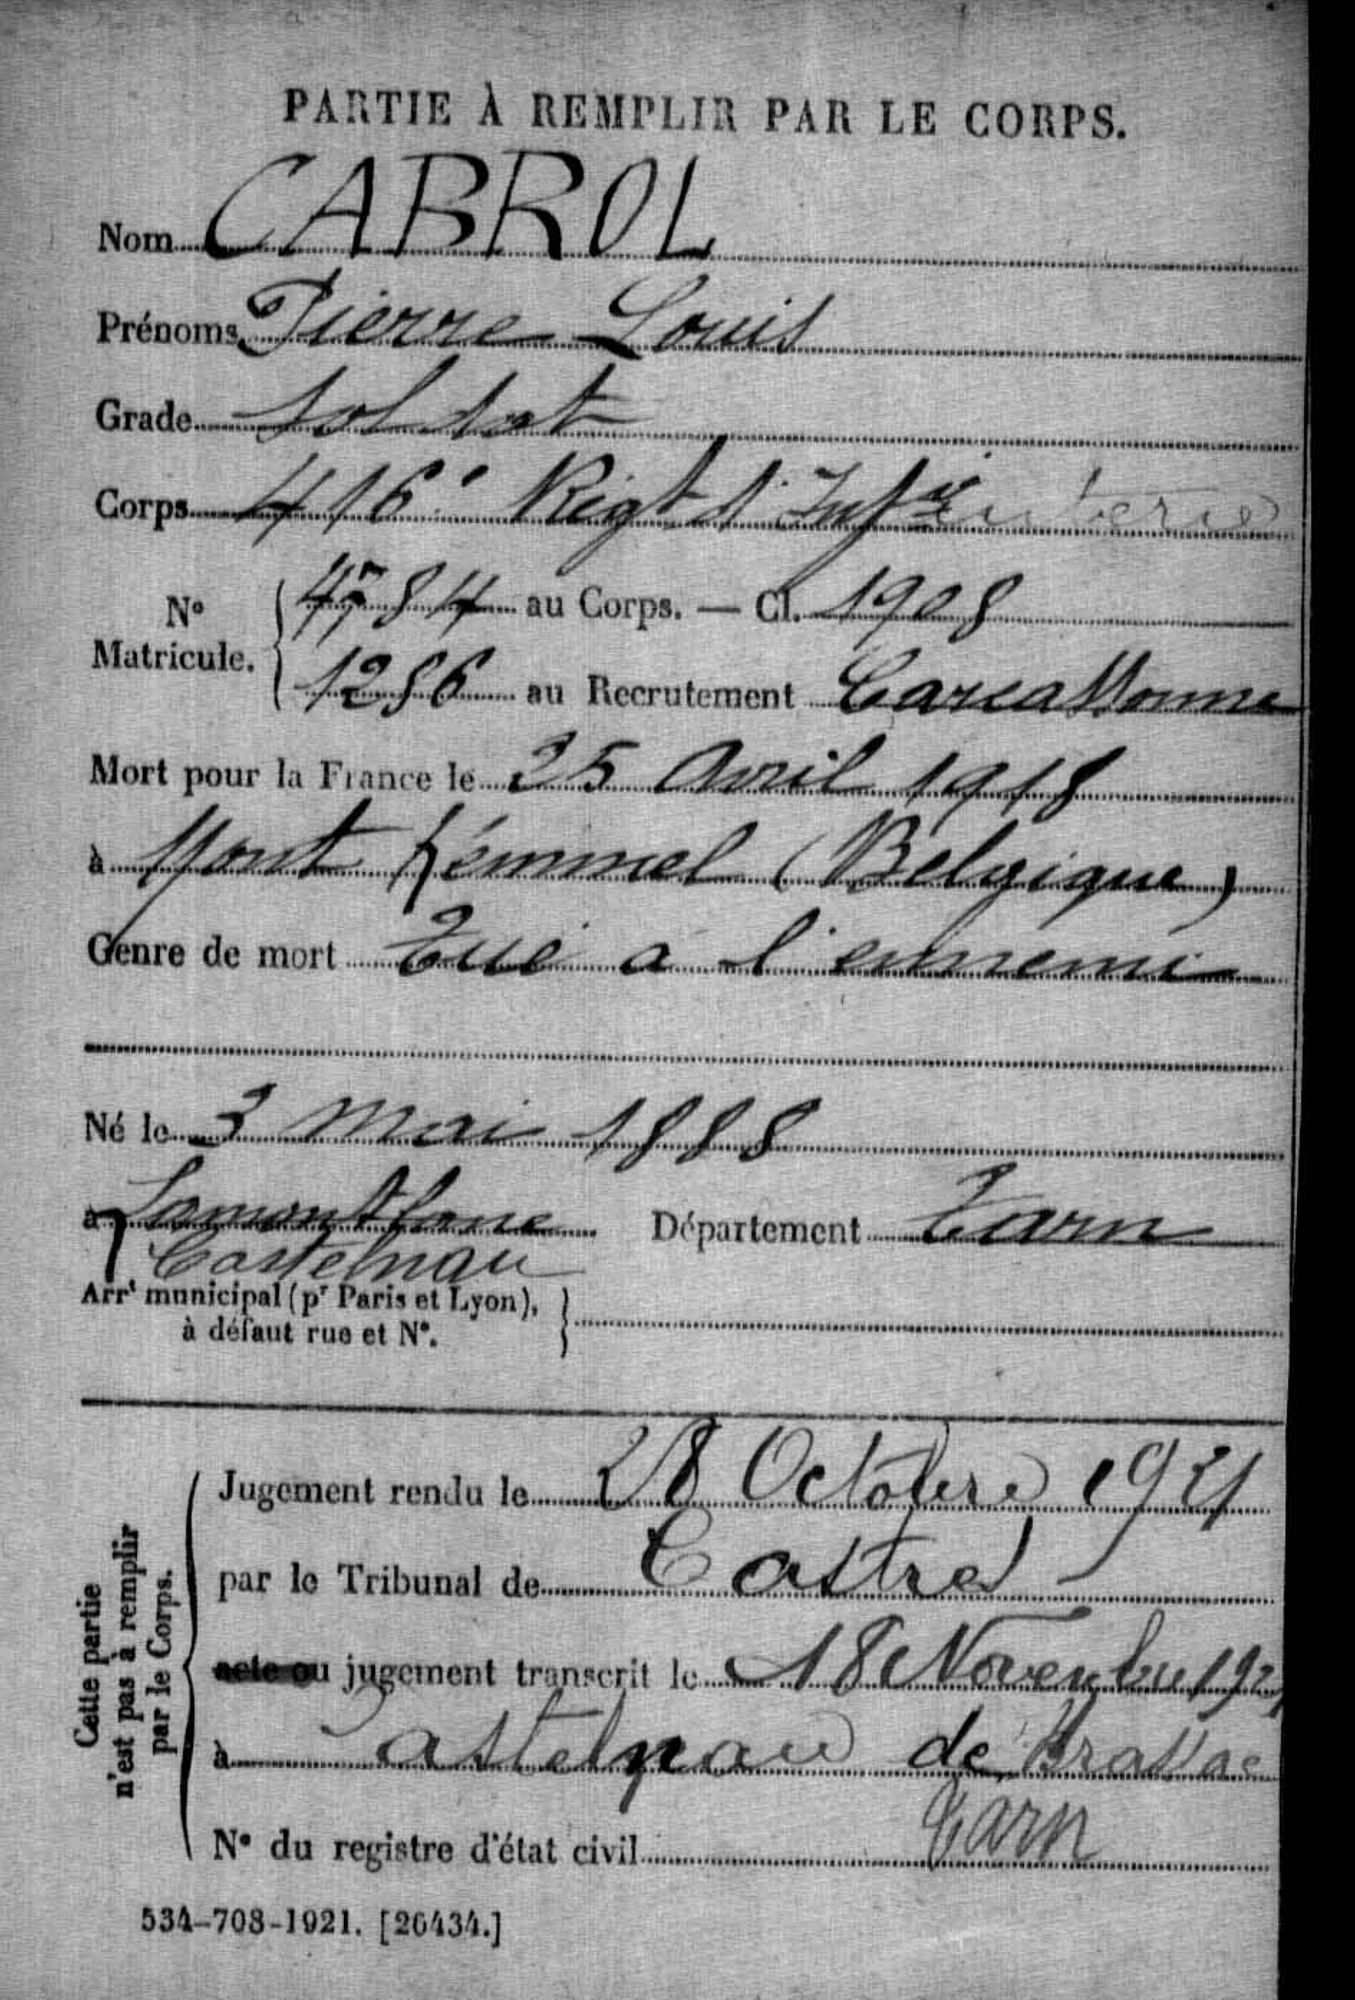 PARTIE À REMPLIR PAR LE CORPS.
Nom CABROL
Prénoms Pierre Louis
Grade Soldat
Corps 416e Régt d'Infie
No Matricule. 4784 au Corps. — Cl. 1908
1286 au Recrutement Carcassonne
Mort pour la France le 25 Avril 1918
à Mont Kémmel (Belgique)
Genre de mort Tué a l'ennemi
Né le 3 Mai 1888
à Département Tarn
Castelnau
Arrt municipal (pr Paris et Lyon),
à défaut rue et No.
Cette partie n'est pas à remplir par le Corps.
Jugement rendu le 28 Octobre 1921
par le Tribunal de Castres
acte ou jugement transcrit le 18 Novembre 1921
à Castelnau de Brassac
Tarn
No du registre d'état civil
534-708-1921. [26434.]